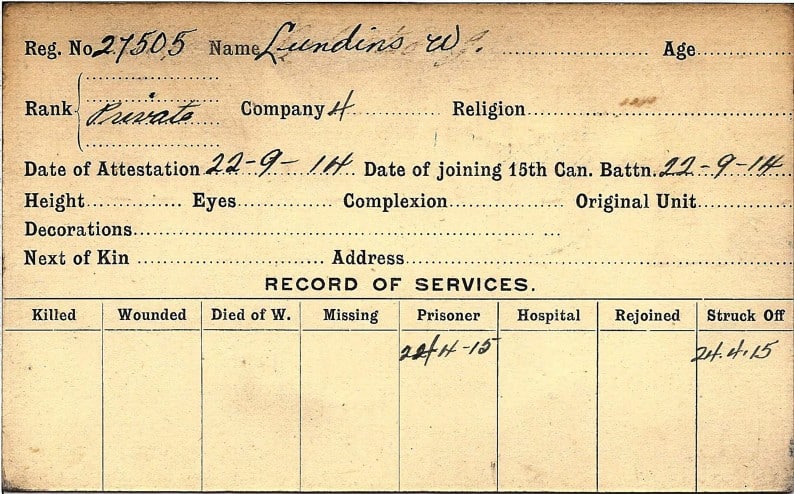 Reg. No 27505 Name Lundins W. Age
Rank Private Company 4 Religion
Date of Attestation 22-9-14 Date of joining 15th Can. Battn. 22-9-14
Height Eyes Complexion Original Unit
Decorations
Next of Kin Address
RECORD OF SERVICES.
Killed Wounded Died of W. Missing Prisoner Hospital Rejoined Struck Off
24-4-15 24.4.15